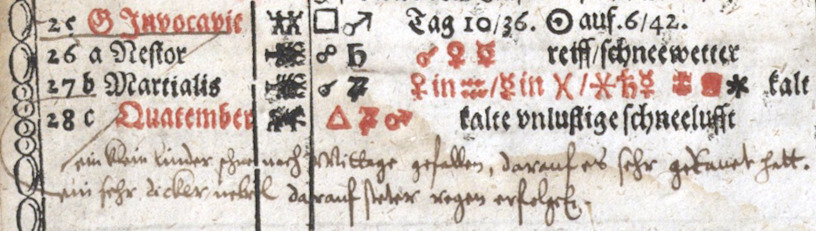 25 G Invocavit □ ♂ Tag 10/36. ☉ auf. 6/42.
26 a Nestor ☍ ♄ ☌ ♀ ☿ reiff/schneewetter
27 b Martialis ☌ ♃ ♀ in ♒/☿ in ♓/⚹ ♄ ☿ ⚹ kalt
28 c Quatember △ ♃ ♂ kalte vnlustige schneelufft
ein klein linder schne nach Mittage gefallen, darauf es sehr hatt.
ein sehr dicker nebel darauf steter regen erfolget.